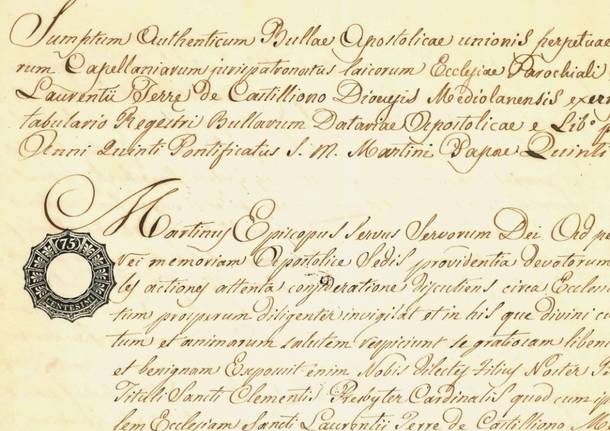 Sumptum Authenticum Bullae Apostolicae unionis perpetuae
rum Capellaniarum jurispatronatus laicorum Ecclesiae Parochiali
Laurentii Terre de Castilliono Dioecesis Mediolanensis
tabulario Regestri Bullarum Datariae Apostolicae e Lib.º
Anni Quinti Pontificatus S. M. Martini Papae Quinti
Martinus Episcopus Servus Servorum Dei Ad
rei memoriam Apostolice Sedis providentia devotorum
actiones attenta consideratione discutiens circa
tum prosperum diligenter invigilat et in his que divini
tum et animarum salutem respiciunt se gratiosam
et benignam Exposuit enim Nobis dilectus filius Noster
Tituli Sancti Clementis Presbyter Cardinalis quod cum
lem Ecclesiam Sancti Laurentii Terre de Castilliono
75
CENTESIMI